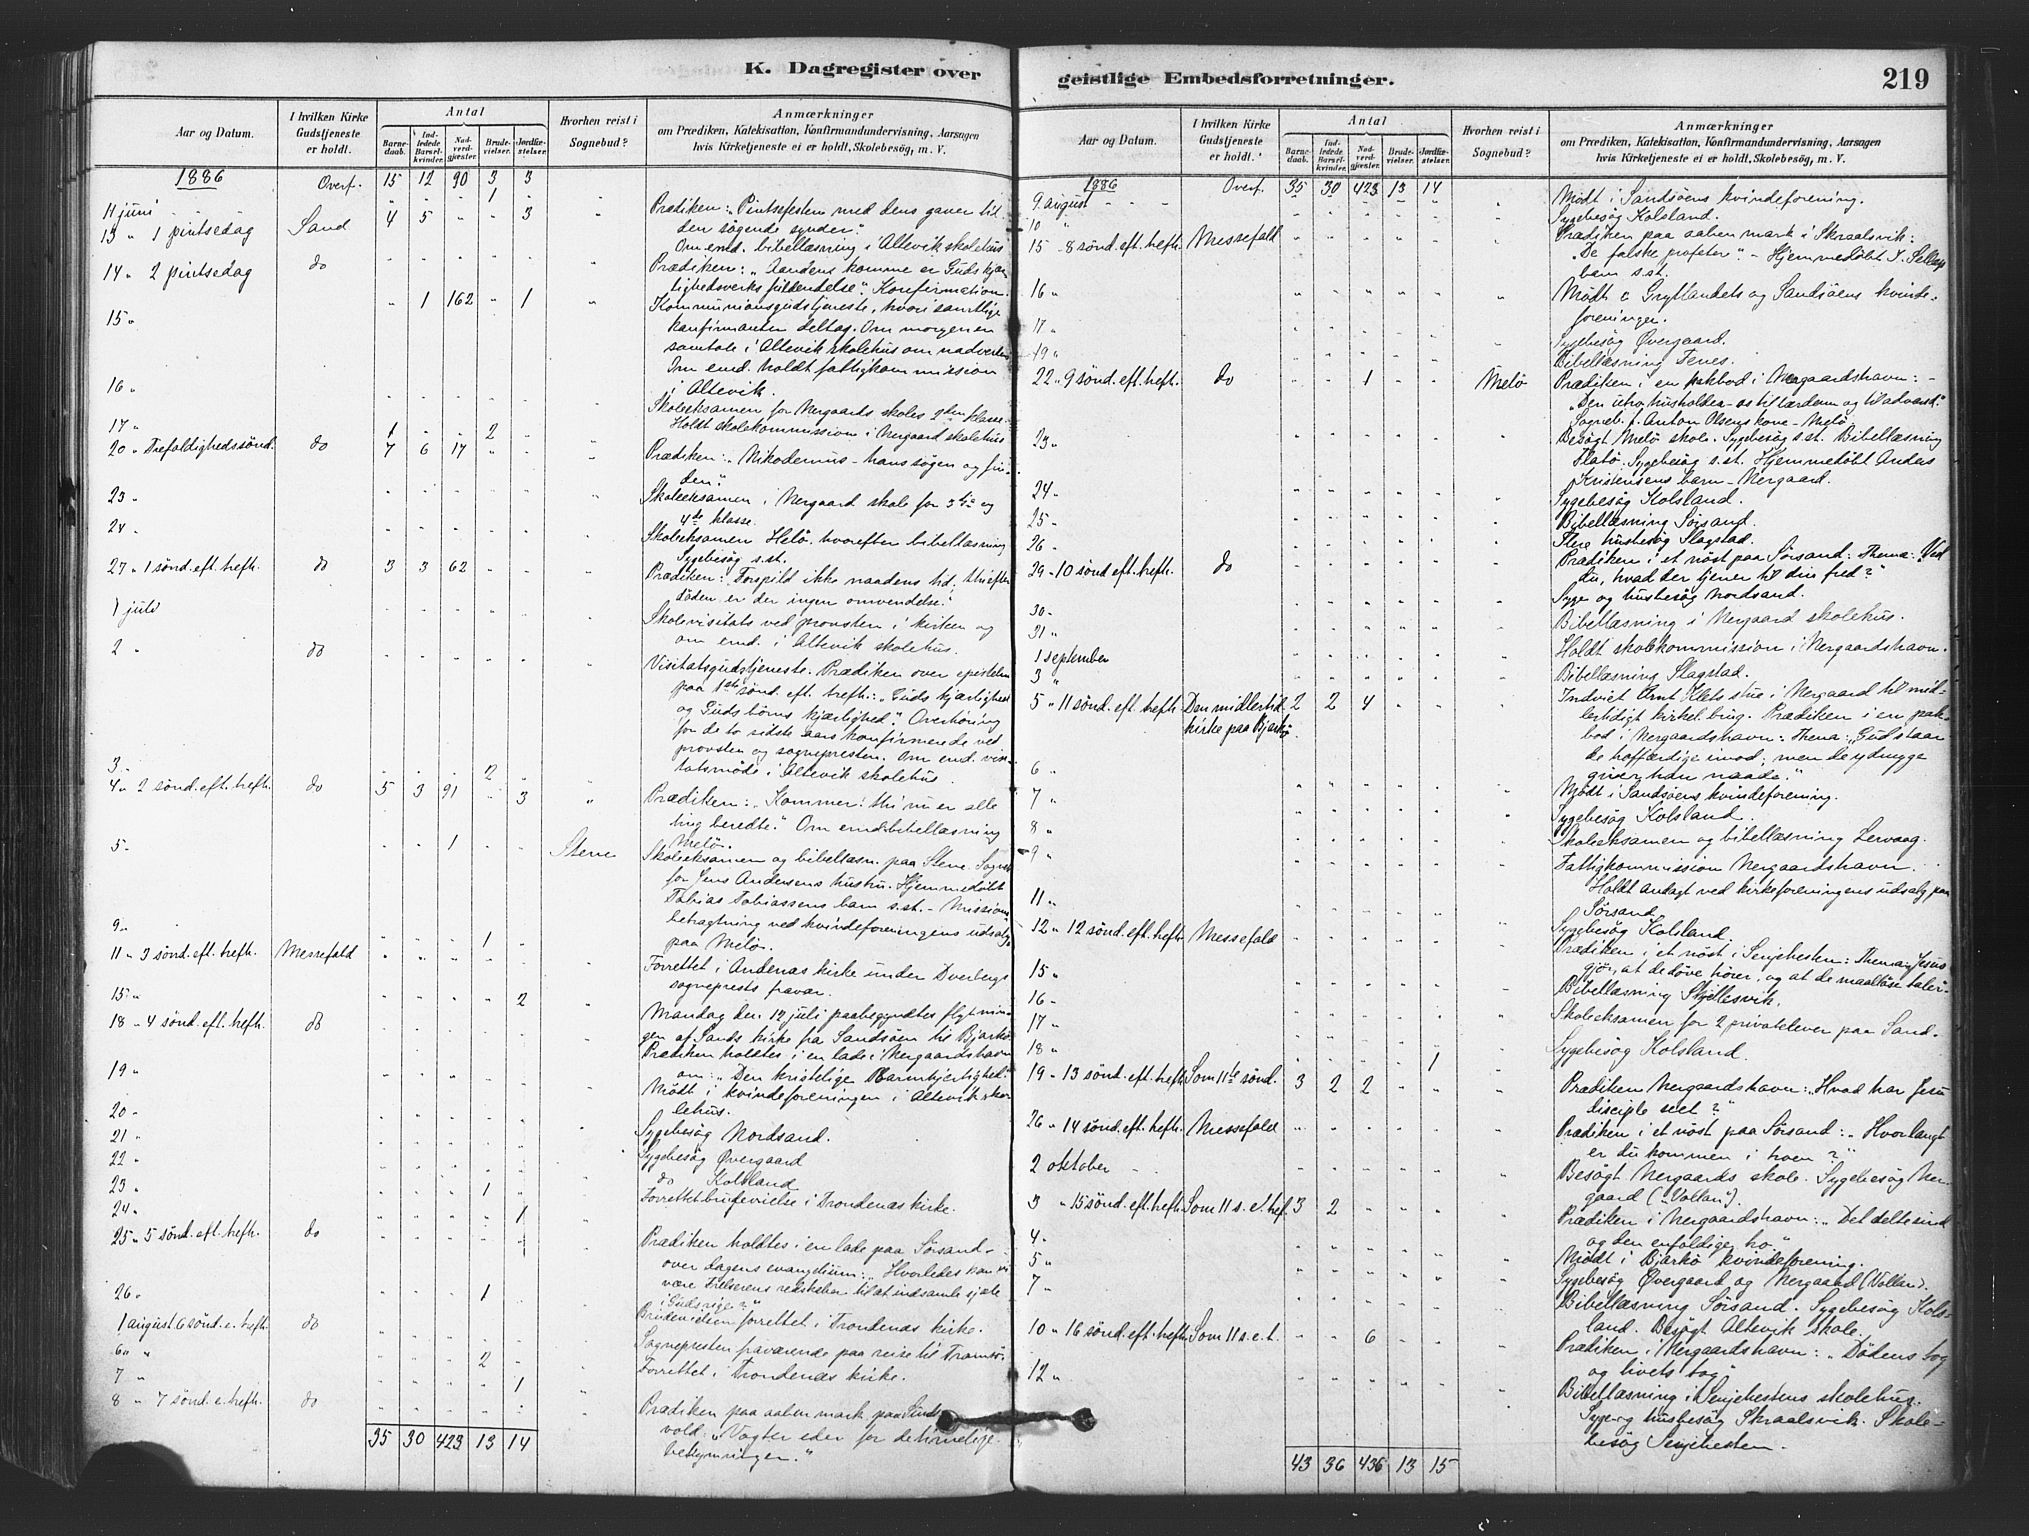 K. Dagregister over
Aar og Datum.
I hvilken Kirke Gudstjeneste er holdt.
Antal
Barnedaab.
Indledede Barselkvinder.
Nadverdgjæster.
Brudevielser.
Jordfæstelser.
Hvorhen reist i Sognebud?
Anmærkninger
om Prædiken, Katekisation, Konfirmandundervisning, Aarsagen
hvis Kirketjeneste ei er holdt, Skolebesøg, m. V.
1886 Overf. 15 12 90 3 3
11 juni 1
13 " 1 pintsedag Sand 4 5 " " 3 Prædiken: "Pintsefesten med dens gaver til
den søgende synder."
Om emd. bibellæsning i Altevik skolehus
14 " 2 pintsedag do Prædiken: "Aandens komme er Guds kjær-
lighedsverks fuldendelse". Konfirmation.
15 " " 1 162 " 1 Kommunionsgudstjeneste, hvori samtlige
konfirmanter deltog. Om morgenen
samtale i Altevik skolehus om nadverden
Om emd. holdt fattigkommission
i Altevik.
16 " Skoleeksamen for Nergaards skoles 2den klasse
17 " 1 " " 2 Holdt skolekommission i Nergaard skolehus
20 " Trefoldighedssønd. do 7 6 17 " " Prædiken: "Nikodemus - hans søgen og fin-
den".
23 " Skoleeksamen i Nergaard skole for 3die og
4de klasse.
24 " Skoleeksamen Helø, hvorefter bibellæsning
Sygebesøg s.st.
27 " 1 sønd. eft. trefh. do 3 3 62 Prædiken: "Forspild ikke naadens tid, thi efter
døden er der ingen omvendelse."
1 juli Skolevisitats ved provsten i kirken og
om emd. i Altevik skolehus.
2 " do Visitatsgudstjeneste. Prædiken over epistelen
paa 1ste sønd. eft. trefh.: "Guds kjærlighed
og Guds børns kjærlighed". Overhøring
for de to sidste aars konfirmerede ved
provsten og sognepresten. Om emd. visi-
tatsmøde i Altevik skolehus.
3 " 2
4 " 2 sønd. eft. trefh. do 5 3 91 " 3 Prædiken: "Kommer! thi nu er alle
ting beredte." Om emd. bibellæsning
Melø.
5 " 1 Stene Skoleeksamen og bibellæsn. paa Stene. Sogneb.
for Jens Andersens hustru. Hjemmedøbt
Tobias Tobiassens barn s.st. - Missions-
betragtning ved kvindeforeningens udsalg
paa Melø.
9 "
11 " 3 sønd. eft. trefh. Messefald 1 Forrettet i Andenæs kirke under Dverbergs
sogneprests fravær.
15 " 2
18 " 4 sønd. eft. trefh. do Mandag den 12 juli paabegyndtes flytnin-
gen af Sands kirke fra Sandsøen til Bjarkø
Prædiken holdtes i en lade i Nergaardshavn
om: "Den kristelige Barmhjertighed."
19 " Mødt i kvindeforeningen i Altevik sko-
lehus.
20 " Sygebesøg Nordsand.
21 " Sygebesøg Øvergaard
22 " do Kolsland
23 " 1 Forrettet brudevielse i Trondenæs kirke.
24 " 1
25 " 5 sønd. eft. trefh. do Prædiken holdtes i en lade paa Sørsand -
over dagens evangelium: "Hvorledes kan vi
være Frelserens redskaber til at indsamle sjæle
i Guds rige?"
26 " 1 Brudevielsen forrettet i Trondenæs kirke.
1 august 6 sønd. e. trefh. do Sognepresten fraværende paa reise til Tromsø.
6 " 2 Forrettet i Trondenæs kirke.
7 " 1
8 " 7 sønd. e. trefh. do Prædiken paa aaben mark paa
vold: "Vogter eder for de timelige
bekymringer."
35 30 423 13 14
geistlige Embedsforretninger. 219
Aar og Datum.
I hvilken Kirke Gudstjeneste er holdt.
Antal
Barnedaab.
Indledede Barselkvinder.
Nadverdgjæster.
Brudevielser.
Jordfæstelser.
Hvorhen reist i Sognebud?
Anmærkninger
om Prædiken, Katekisation, Konfirmandundervisning, Aarsagen
hvis Kirketjeneste ei er holdt, Skolebesøg, m. V.
1886 Overf. 35 30 423 13 14
9 august Mødt i Sandsøens kvindeforening.
10 " Sygebesøg Kolsland.
15 - 8 sønd. eft. trefh. Messefald Prædiken paa aaben mark i Skraalsvik:
"De falske profeter". - Hjemmedøbt
barn s.st.
16 " Mødt i Gryllandets og Sandsøens kvinde-
foreninger.
17 " Sygebesøg Øvergaard.
19 " Bibellæsning Fenes.
22 " 9 sønd. eft. trefh. do 1 Melø Prædiken i en pakbod i Nergaardshavn: -
"Den utro husholder - os til lærdom og til advarsel."
Sogneb. f. Anton Olsens kone - Melø.
23 " Besøgt Melø skole. Sygebesøg s.st. Bibellæsning
Flatø. Sygebesøg s.st. Hjemmedøbt Anders
Kristensens barn - Nergaard.
24 " Sygebesøg Kolsland.
25 " Bibellæsning Sørsand.
26 " Flere husbesøg Slagstad.
29 - 10 sønd. eft. trefh. do Prædiken i et nøst paa Sørsand: Thema: Ved
du, hvad der tjener til din fred?"
30 " Syge og husbesøg Nordsand.
31 " Bibellæsning i Nergaard skolehus.
1 september Holdt skolekommission i Nergaardshavn.
3 " Bibellæsning Slagstad.
5 " 11 sønd. eft. trefh. Den midlertid. 2 2 4 Indviet Arnt Klets stue i Nergaard til mid-
kirke paa Bjarkø lertidigt kirkel. brug. Prædiken i en pak-
bod i Nergaardshavn: Thema: "Gud staar
de hoffærdige imod, men de ydmyge
giver han naade."
6 " Mødt i Sandsøens kvindeforening.
7 " Sygebesøg Kolsland.
8 " Skoleeksamen og bibellæsning Lervaag.
9 " Fattigkommission Nergaardshavn.
11 " Holdt andagt ved kirkeforeningens udsalg paa
Sørsand
12 " 12 sønd. eft. trefh. Messefald Sygebesøg Kolsland
Prædiken i et nøst i Senjehesten: Thema: "Jesus
gjør, at de døve hører, og at de maalløse taler"
15 " Bibellæsning Skjellesvik.
16 " Skoleeksamen for 2 privatelever paa Sand.
17 " Sygebesøg Kolsland.
18 " 1
19 " 13 sønd. eft. trefh. Som 11te sønd. 3 2 2 Prædiken Nergaardshavn: "Hvad har Jesu
disciple seet?"
26 " 14 sønd. eft. trefh. Messefald Prædiken i et nøst paa Sørsand: "Hvorlangt
er du kommen i troen?"
2 oktober Besøgt Nergaards skole. Sygebesøg Ner-
gaard ("Vollen").
3 " 15 sønd. eft. trefh. Som 11 s. e. tref. 3 2 Prædiken i Nergaardshavn: "Det delte sind
og den enfoldige tro."
4 " Mødt i Bjarkø kvindeforening.
5 " Sygebesøg Øvergaard og Nergaard (Vollen).
7 " Bibellæsning Sørsand. Sygebesøg Kols-
land. Besøgt Altevik skole.
10 " 16 sønd. eft. trefh. Som 11 s. e. t. " " 6 Prædiken i Nergaardshavn: "Dødens tog
og livets tog"
12 " Bibellæsning i Senjehestens skolehus.
Syge og husbesøg Skraalsvik. Skole-
besøg Senjehesten.
43 36 436 13 15